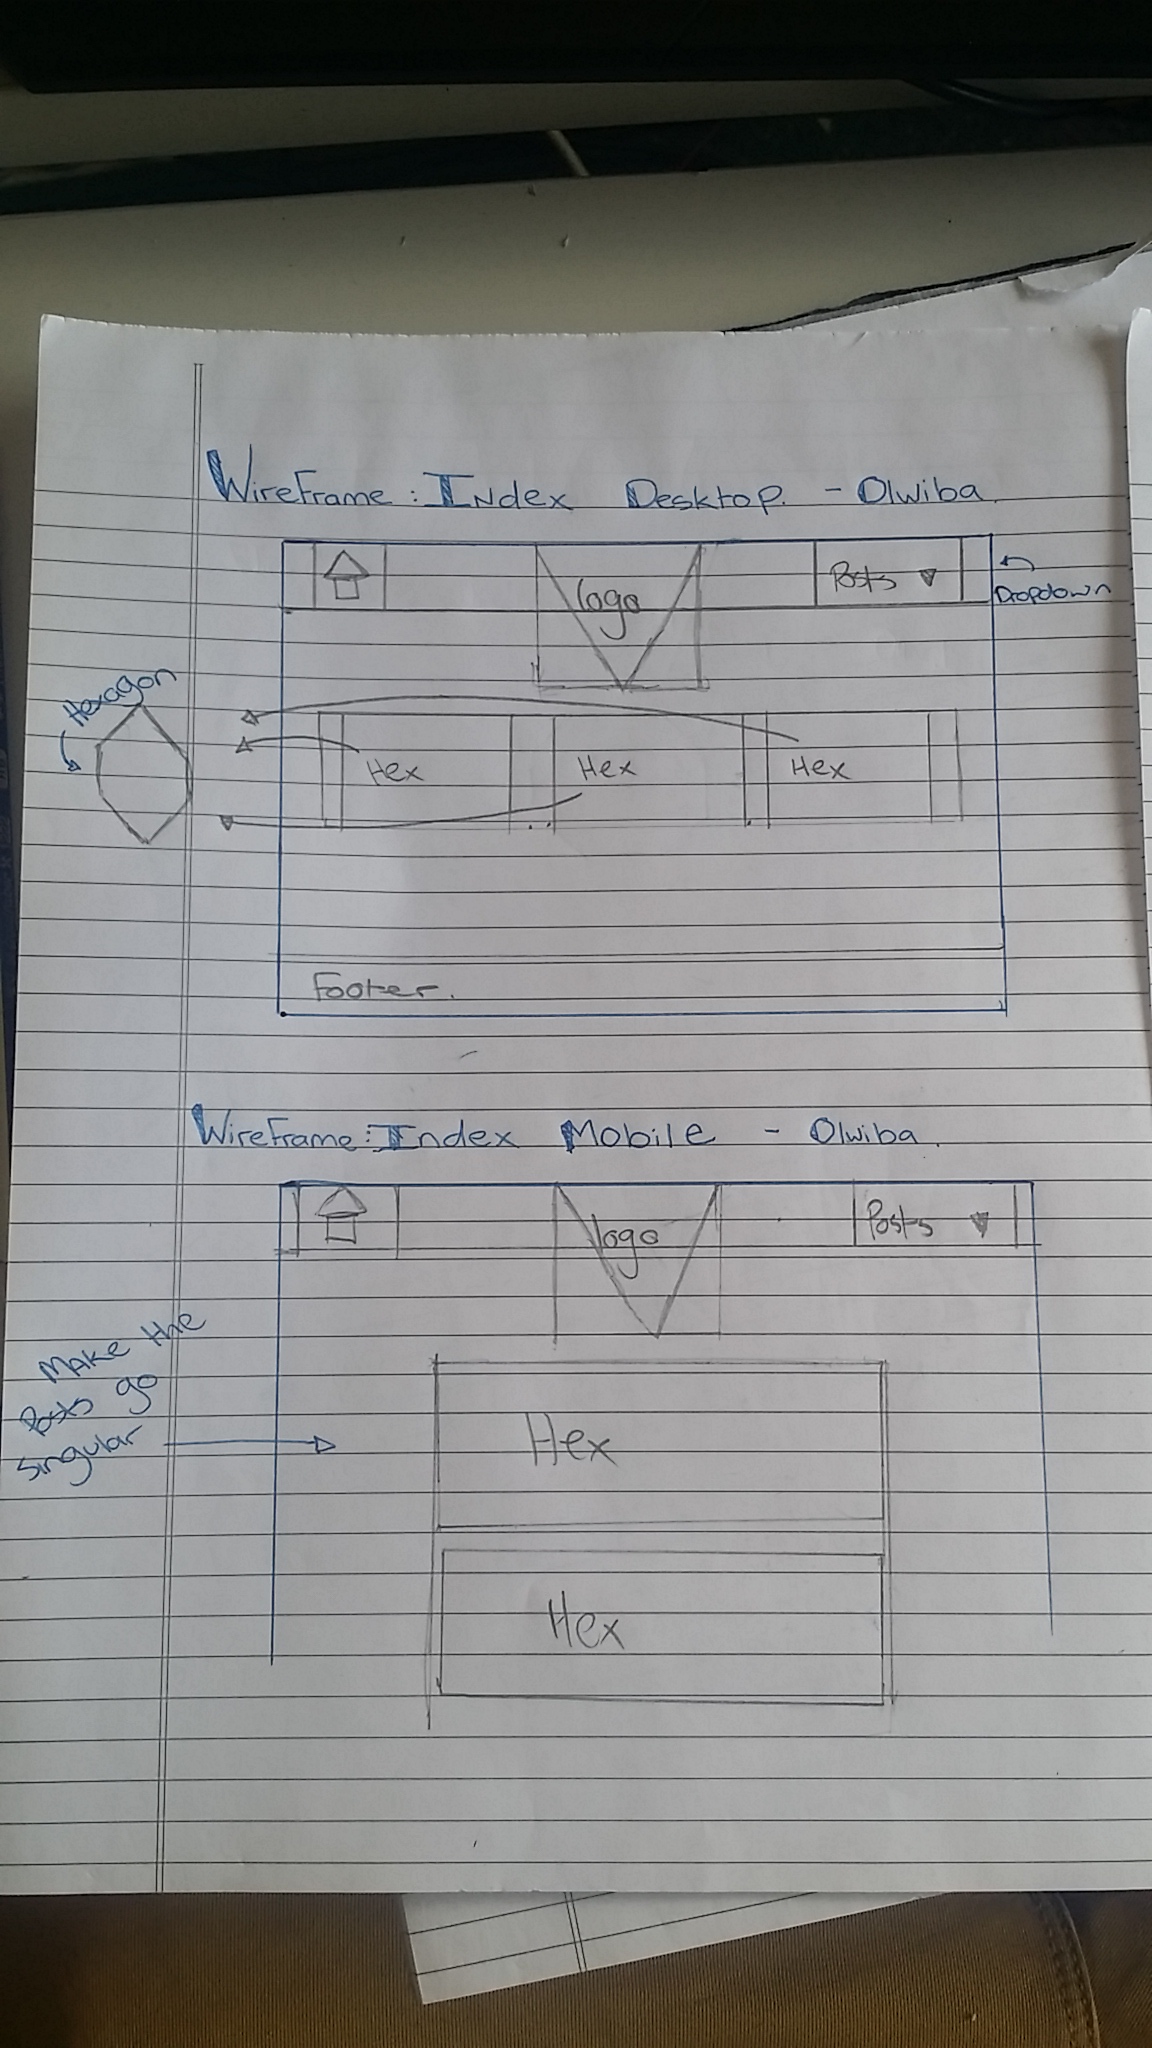 WireFrame: Index Desktop. - Olwiba.
logo
Posts
Dropdown
Hexagon
Hex
Hex
Hex
Footer.
WireFrame: Index Mobile - Olwiba.
logo
Posts
Make the
Posts go
Singular
Hex
Hex